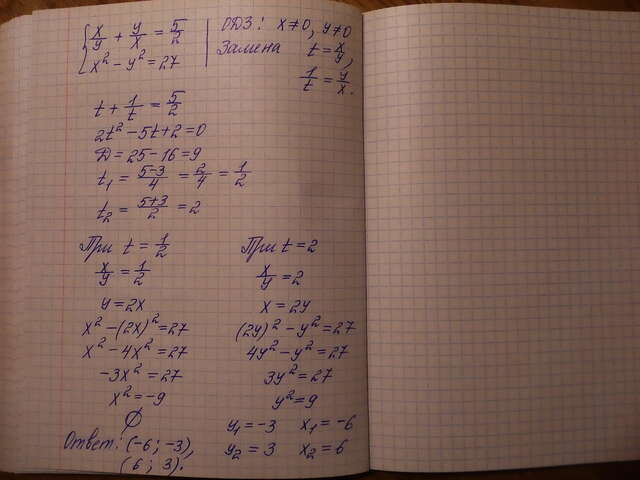 x/y + y/x = 5/2
x² - y² = 27
ОДЗ: x≠0, y≠0
Замена t = x/y,
1/t = y/x.
t + 1/t = 5/2
2t² - 5t + 2 = 0
D = 25 - 16 = 9
t₁ = (5-3)/4 = 2/4 = 1/2
t₂ = (5+3)/2 = 2
При t = 1/2
x/y = 1/2
y = 2x
x² - (2x)² = 27
x² - 4x² = 27
-3x² = 27
x² = -9
∅
При t = 2
x/y = 2
x = 2y
(2y)² - y² = 27
4y² - y² = 27
3y² = 27
y² = 9
y₁ = -3 x₁ = -6
y₂ = 3 x₂ = 6
Ответ: (-6; -3),
(6; 3).